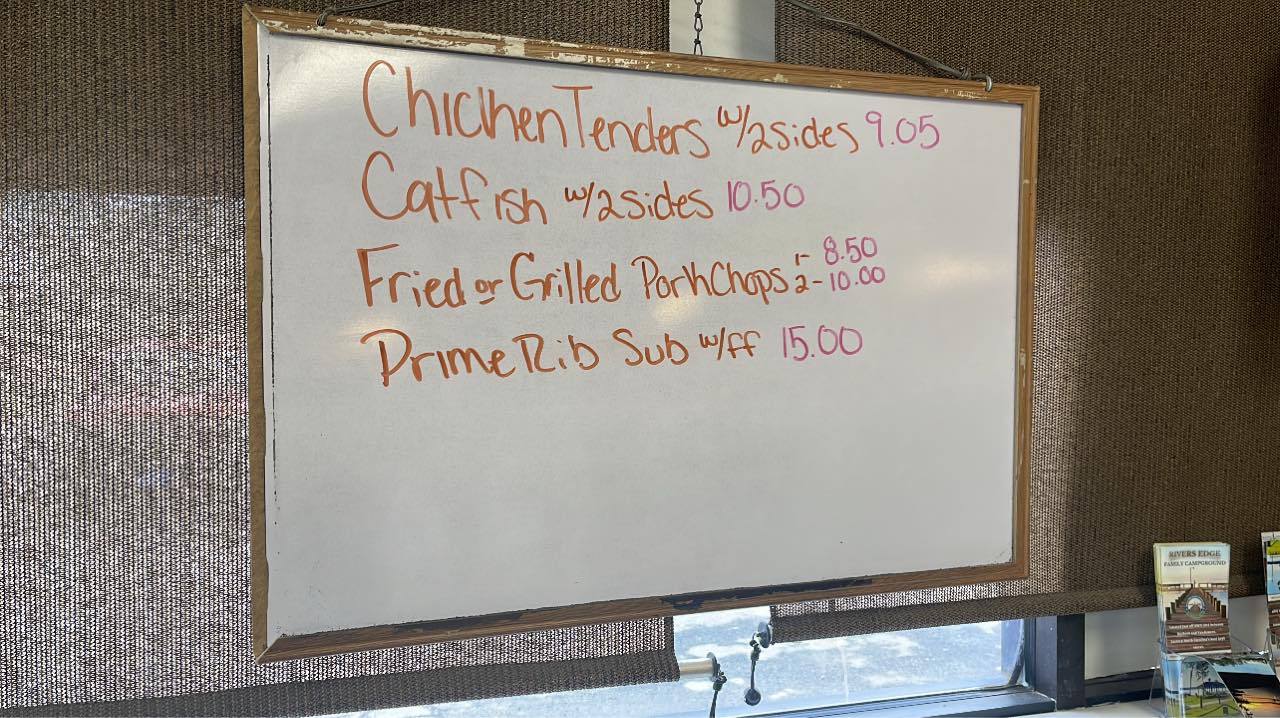 Chicken Tenders w/2sides 9.05
Catfish w/2sides 10.50
Fried or Grilled Pork Chops 1- 8.50
2- 10.00
Prime Rib Sub w/ff 15.00
RIVERS EDGE
FAMILY CAMPGROUND